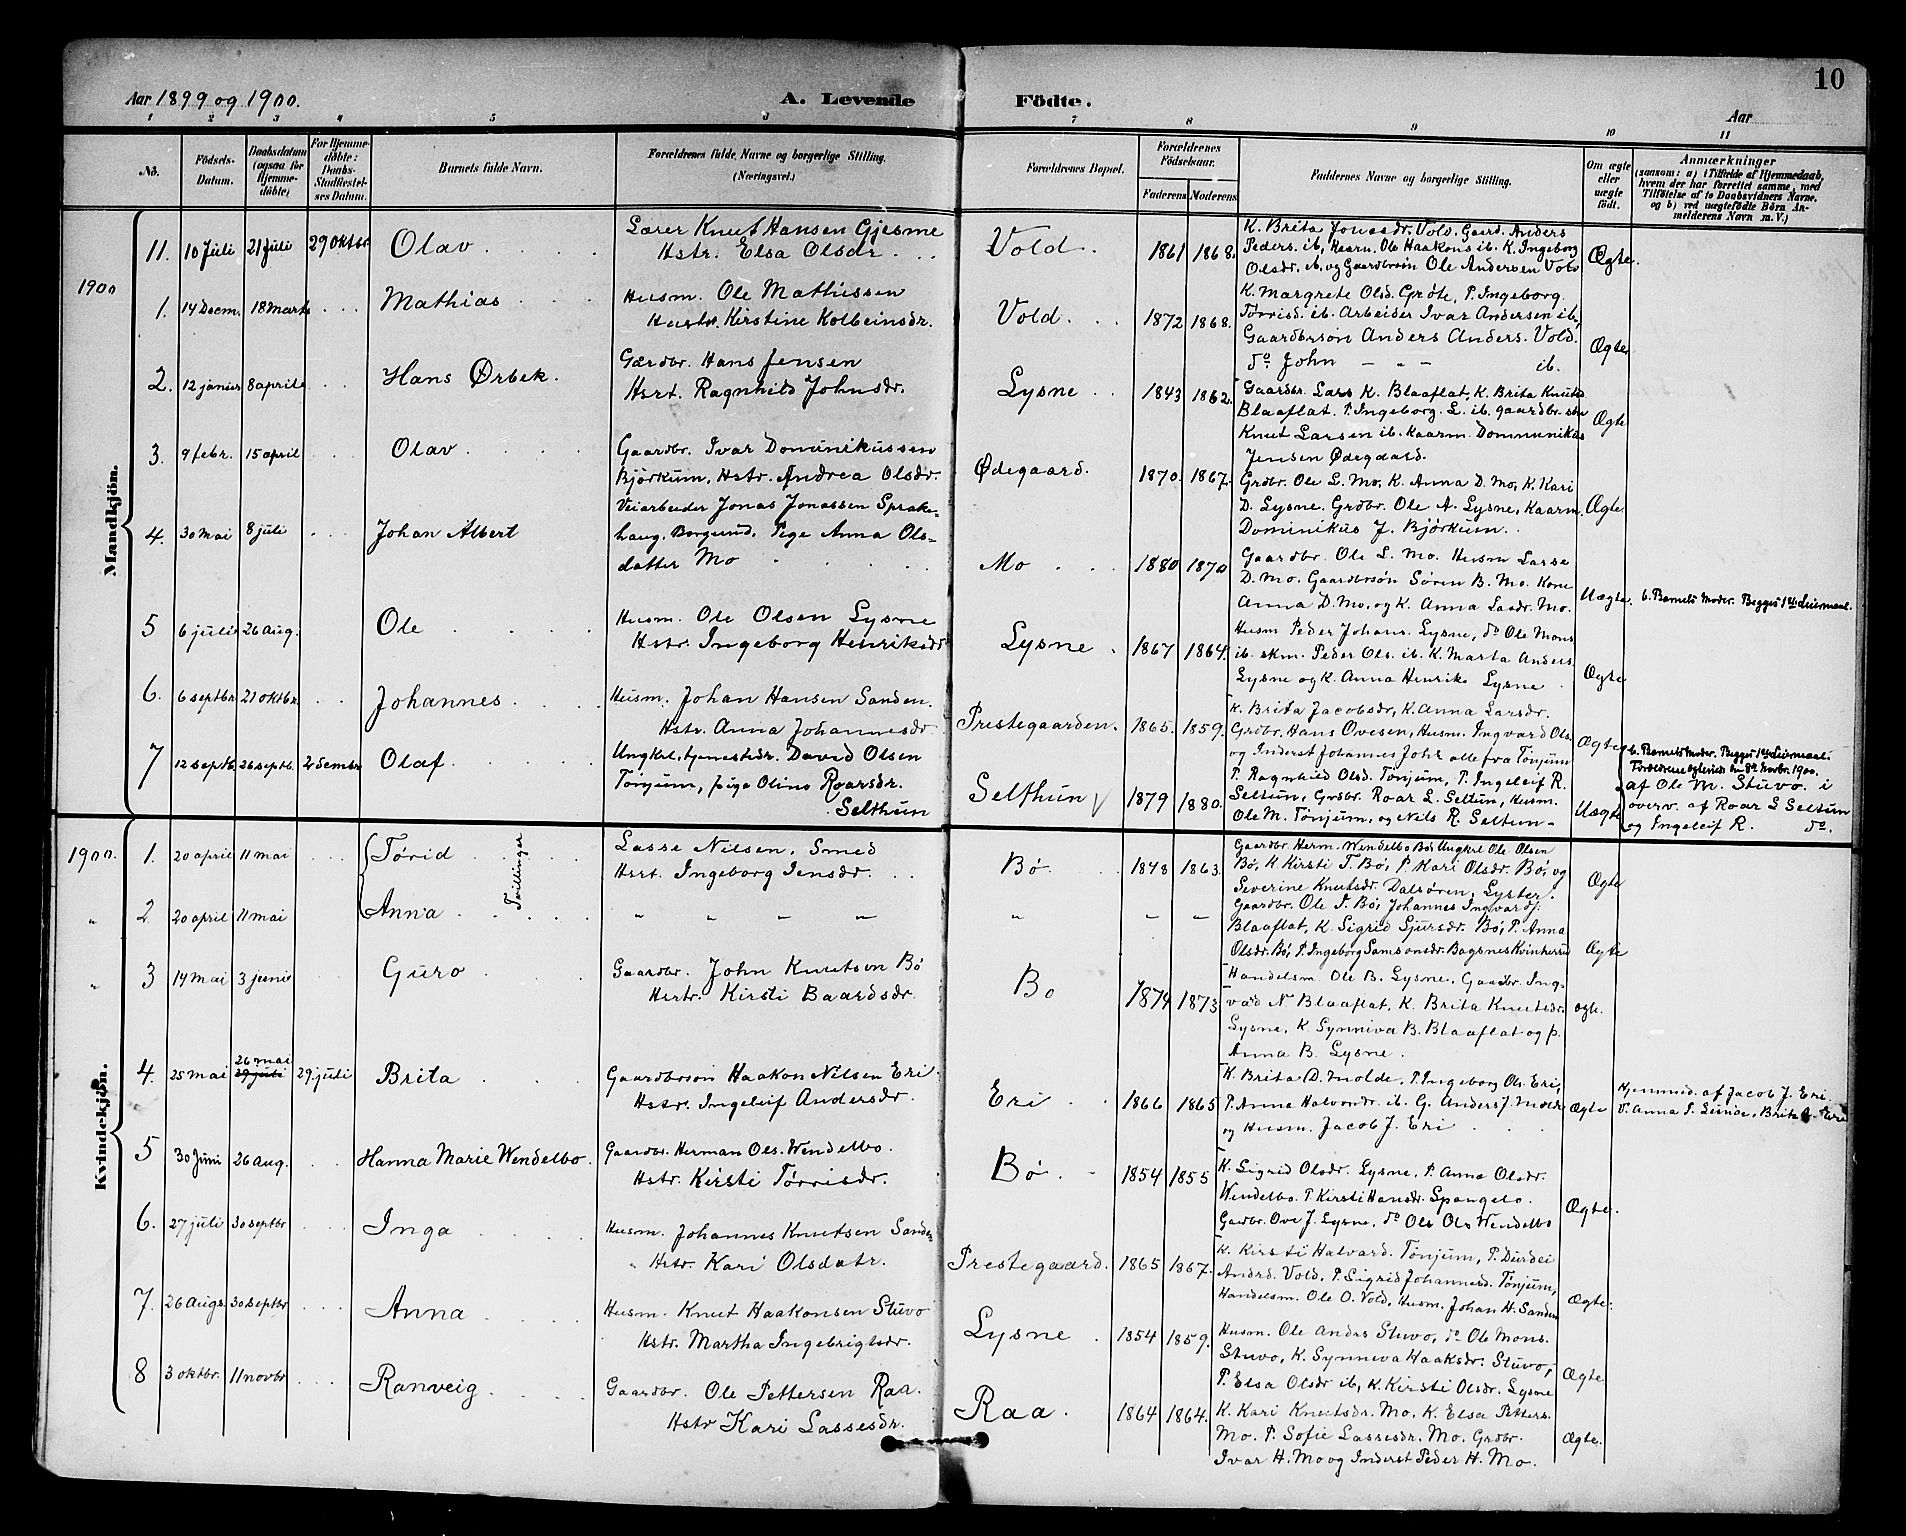 10
Aar 1899 og 1900.
A. Levende Födte.
Aar
1 2 3 4 5 6 7 8 9 10 11
No.
Födsels-Datum.
Daabsdatum (ogsaa for Hjemmedöbte)
For Hjemmedöbte: Daabs-Stadfæstelses Datum.
Barnets fulde Navn.
Forældrenes fulde Navne og borgerlige Stilling. (Næringsvei.)
Forældrenes Bopæl.
Forældrenes Födselsaar.
Faderens Moderens
Faddernes Navne og borgerlige Stilling.
Om ægte eller uægte födt.
Anmærkninger
(saasom: a) i Tilfælde af Hjemmedaab, hvem der har forrettet samme, med Tilföielse af to Daabsvidners Navne, og b) ved uægtefödte Börn Anmelderens Navn m. V.)
Mandkjön.
11. 10 Juli 21 Juli 29 Oktbr Olav
Lærer Knut Hansen Gjesme
Hstr. Elsa Olsdr.
Vold 1861 1868.
K. Brita Jonasdr. Vold. Gaard. Anders
Peders. ib, Kaarm. Ole Haakons ib. K. Ingeborg
Olsdr. ib. og Gaardbrsøn Ole Andersen Vold
Ægte.
1900
1. 14 Decm. 18 Marts Mathias
Husm. Ole Mathissen
Hustr. Kirstine Kolbeinsdr.
Vold. 1872 1868.
K. Margrete Olsd. Grøte, P. Ingeborg
Tørrisd. ib. Arbeider Ivar Andersen ib,
Gaardbrsøn Anders Anders. Vold.
do John — „ — ib.
Ægte
2. 12 januar 8 april Hans Ørbek.
Gardbr. Hans Jensen
Hstr. Ragnhild Johnsdr.
Lysne 1843 1862.
Gaardbr. Lars K. Blaaflat, K. Brita Knutsd
Blaaflat. P. Ingeborg. L. ib. gaardbr. søn
Knut Larsen ib. kaarm. Dommunikus
Jensen Ødegaard.
Ægte
3. 9 febr. 15 april Olav
Gaardbr. Ivar Dominikussen
Bjørkum, Hstr. Andrea Olsdr.
Ødegaard. 1870. 1867.
Grdbr. Ole L. Mo, K. Anna D. Mo, K. Kari
D. Lysne. Grdbr. Ole A. Lysne, Kaarm.
Dominikus J. Bjørkum.
Ægte
4. 30 Mai 8 juli Johan Albert
Veiarbeider Jonas Jonassen Sprake-
haug. Borgund. Pige Anna Ols-
datter Mo
Mo 1880 1870
Gaardbr. Ole L. Mo. Husm Lasse
D. Mo. Gaardbrsøn Søren B. Mo. Kone
Anna D. Mo, og K. Anna Lasdr. Mo.
Uægte. b. Barnets Moder. Begges 1ste Leiermaal.
5 6 juli 26 Aug. Ole
Husm. Ole Olsen Lysne
Hstr. Ingeborg Henriksdr
Lysne 1867 1864.
Husm Peder Johans. Lysne, do Ole Mons
ib. skm. Peder Ols. ib. K. Marta Anders.
Lysne og K. Anna Henriks Lysne.
Ægte
6. 6 septbr. 21 oktbr. Johannes
Husm. Johan Hansen Sanden.
Hstr. Anna Johannesdr
Prestegaarden. 1865. 1859.
K. Brita Jacobsdr, K. Anna Larsdr.
Grdbr. Hans Ovesen, Husm. Ingvard Ols.
og Inderst Johannes Joh. alle fra Tønjum
Ægte
7 12 septb. 26 septb. 2 Desembr Olaf
Ungkrl. tjenestedr. David Olsen
Tønjum, pige Olina Roarsdr.
Selthun
Selthun 1879 1880.
P. Ragnhild Olsd. Tønjum, P. Ingeleif R.
Seltun, Grdbr. Roar L. Seltun, Husm.
Ole M. Tønjum, og Nils R. Seltun.
Uægte
b. Barnets Moder. Begges 1ste Leiermaal.
Forældrene ægteviet den 8de Novbr. 1900.
af Ole M. Stuvo. i
overv. af Roar L Seltun
og Ingeleif R. do.
Kvindekjön.
1900. 1. 20 april 11 mai Tørid
Tvillinger
Lasse Nilsen, Smed
Hstr. Ingeborg Jensdr.
Bø. 1848 1863.
Gaardbr. Herm. Wendelbo Bø, Ungkrl Ole Olsen
Bø, K. Kirsti T. Bø, P. Kari Olsdr. Bø, og
Severine Knutsdr. Dalsøren, Lyster.
Ægte
„ 2 20 april 11 mai Anna
„ „ — —
„ — —
Gaardbr. Ole T. Bø, Johannes Ingvardj.
Blaaflat, K. Sigrid Sjursdr. Bø, P. Anna
Olsdr. Bø, P. Ingeborg Samsonsdr. Bagsnes Kvinherred
Ægte
„ 3 14 Mai 3 juni Guro
Gaardbr. John Knutsen Bø
Hstr. Kirsti Baardsdr.
Bø 1874 1873
Handelsm. Ole B. Lysne, Gaardbr. Ing-
vard N Blaaflat, K. Brita Knutsdr.
Lysne, K. Synniva B. Blaaflat og p.
Anna B. Lysne.
ægte.
4. 25 Mai 26 mai 29 juli 29 juli Brita
Gaardbrsøn Haakon Nilsen Eri
Hstr. Ingeleif Andersdr.
Eri 1866 1865
K. Brita D. Molde, P. Ingeborg Ols. Eri,
P. Anna Halvorsdr. ib. G. Anders J. Molde
og Husm. Jacob J. Eri
Ægte
Hjemmed. af Jacob J. Eri.
V. Anna P. Linde, Brita A. Eri
5 30 Juni 26 Aug. Hanna Marie Wendelbo.
Gaardbr. Herman Ols. Wendelbo.
Hstr. Kirsti Tørrisdr.
Bø. 1854 1855
K. Sigrid Olsdr. Lysne, P. Anna Olsdr.
Wendelbo. P. Kirsti Hansdr. Spangelo.
Gardbr. Ove J. Lysne, do Ole Ols Wendelbo
Ægte.
6. 27 juli 30 septbr Inga
Husm. Johannes Knutsen Sanden
„ Hstr. Kari Olsdatr.
Prestegaard. 1865 1867.
K. Kirsti Halvard. Tønjum, P. Durdei
Andrd. Vold, P. Sigrid Johannesd. Tønjum,
Handelsm. Ole O. Vold, Husm. Johan H. Sanden
Ægte.
7. 26 Augs. 30 septbr Anna
Husm. Knut Haakonsen Stuvo
Hstr. Martha Ingebrigtsdr.
Lysne 1854 1859.
Husm. Ole Andrs Stuvo, do Ole Mons.
Stuvo, K. Synneva Haaksdr. Stuvo,
P. Elsa Olsdr ib, K. Kirsti Olsdr. Lysne
Ægte
8 3 oktbr. 11 novbr Ranveig
Gaardbr. Ole Pettersen Raa.
Hstr Kari Lassesdr.
Raa. 1864 1864.
K. Kari Knutsdr. Mo, K. Elsa Petters.
Mo. P. Sofie Lassesdr. Mo. Grdbr.
Ivar H. Mo og Inderst Peder H. Mo.
Ægte.